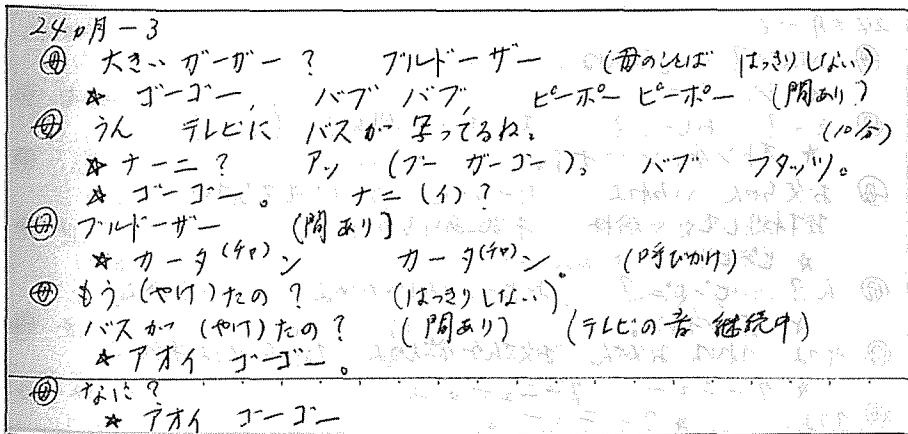 24ヵ月－3
㊊ 大きい ガーガー？ ブルドーザー （母のことば はっきりしない）
☆ ゴーゴー、 バブ バブ、 ピーポー ピーポー （間あり）
㊊ うん テレビに バスが 写ってるね。 （10分）
☆ ナーニ？ アッ （ブー ガーゴー）。 バブ フタッツ。
☆ ゴーゴー。 ナニ（イ）？
ブルドーザー （間あり）
☆ カータ（チャ）ン カータ（チャ）ン。 （呼びかけ）
もう（やけ）たの？ （はっきりしない）。
バスが（やけ）たの？ （間あり） （テレビの音 継続中）
☆ アオイ ゴーゴー。
なに？
☆ アオイ ゴーゴー